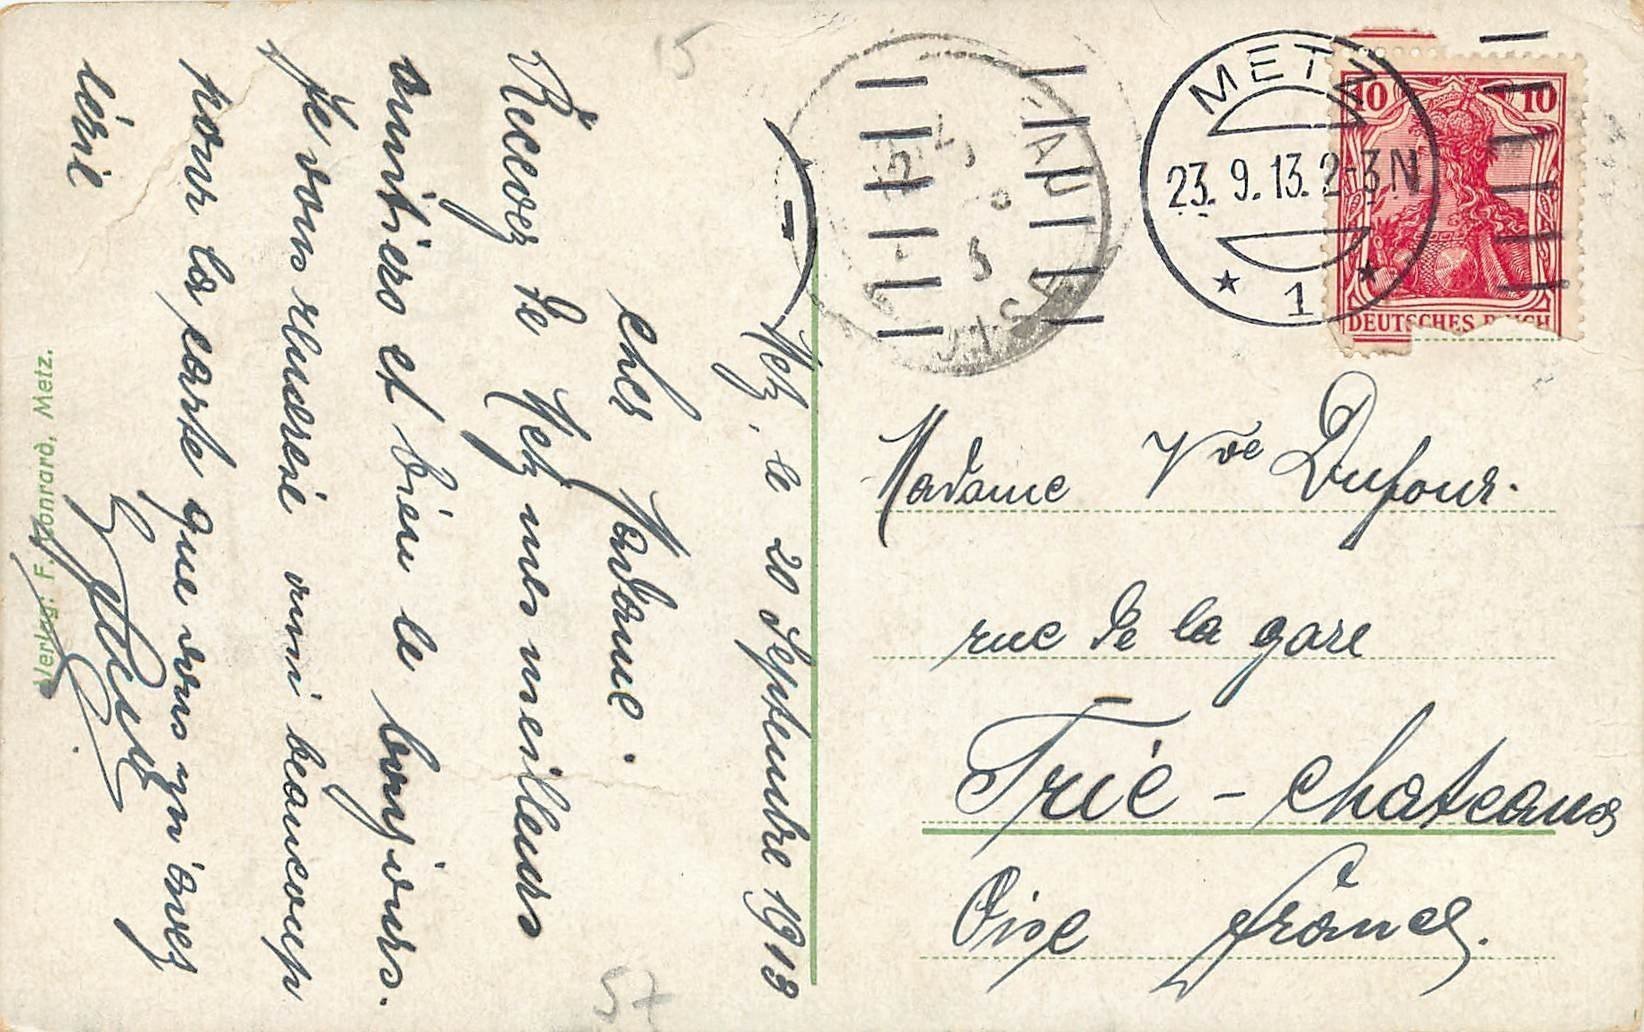 Metz, le 20 Septembre 1913
cher Madame.
Recevez de Metz mes meilleurs
amitiers et bien le bonjours.
Je vous remersie ausi beaucoup
pour la carte que vous m'avez
Verlag: F. Conrard, Metz.
METZ
23. 9. 13. 2-3 N
* 1 *
10 10
DEUTSCHES REICH
15
Madame Vve Dufour.
rue de la gare
Trie - chateaux
Oise france.
57